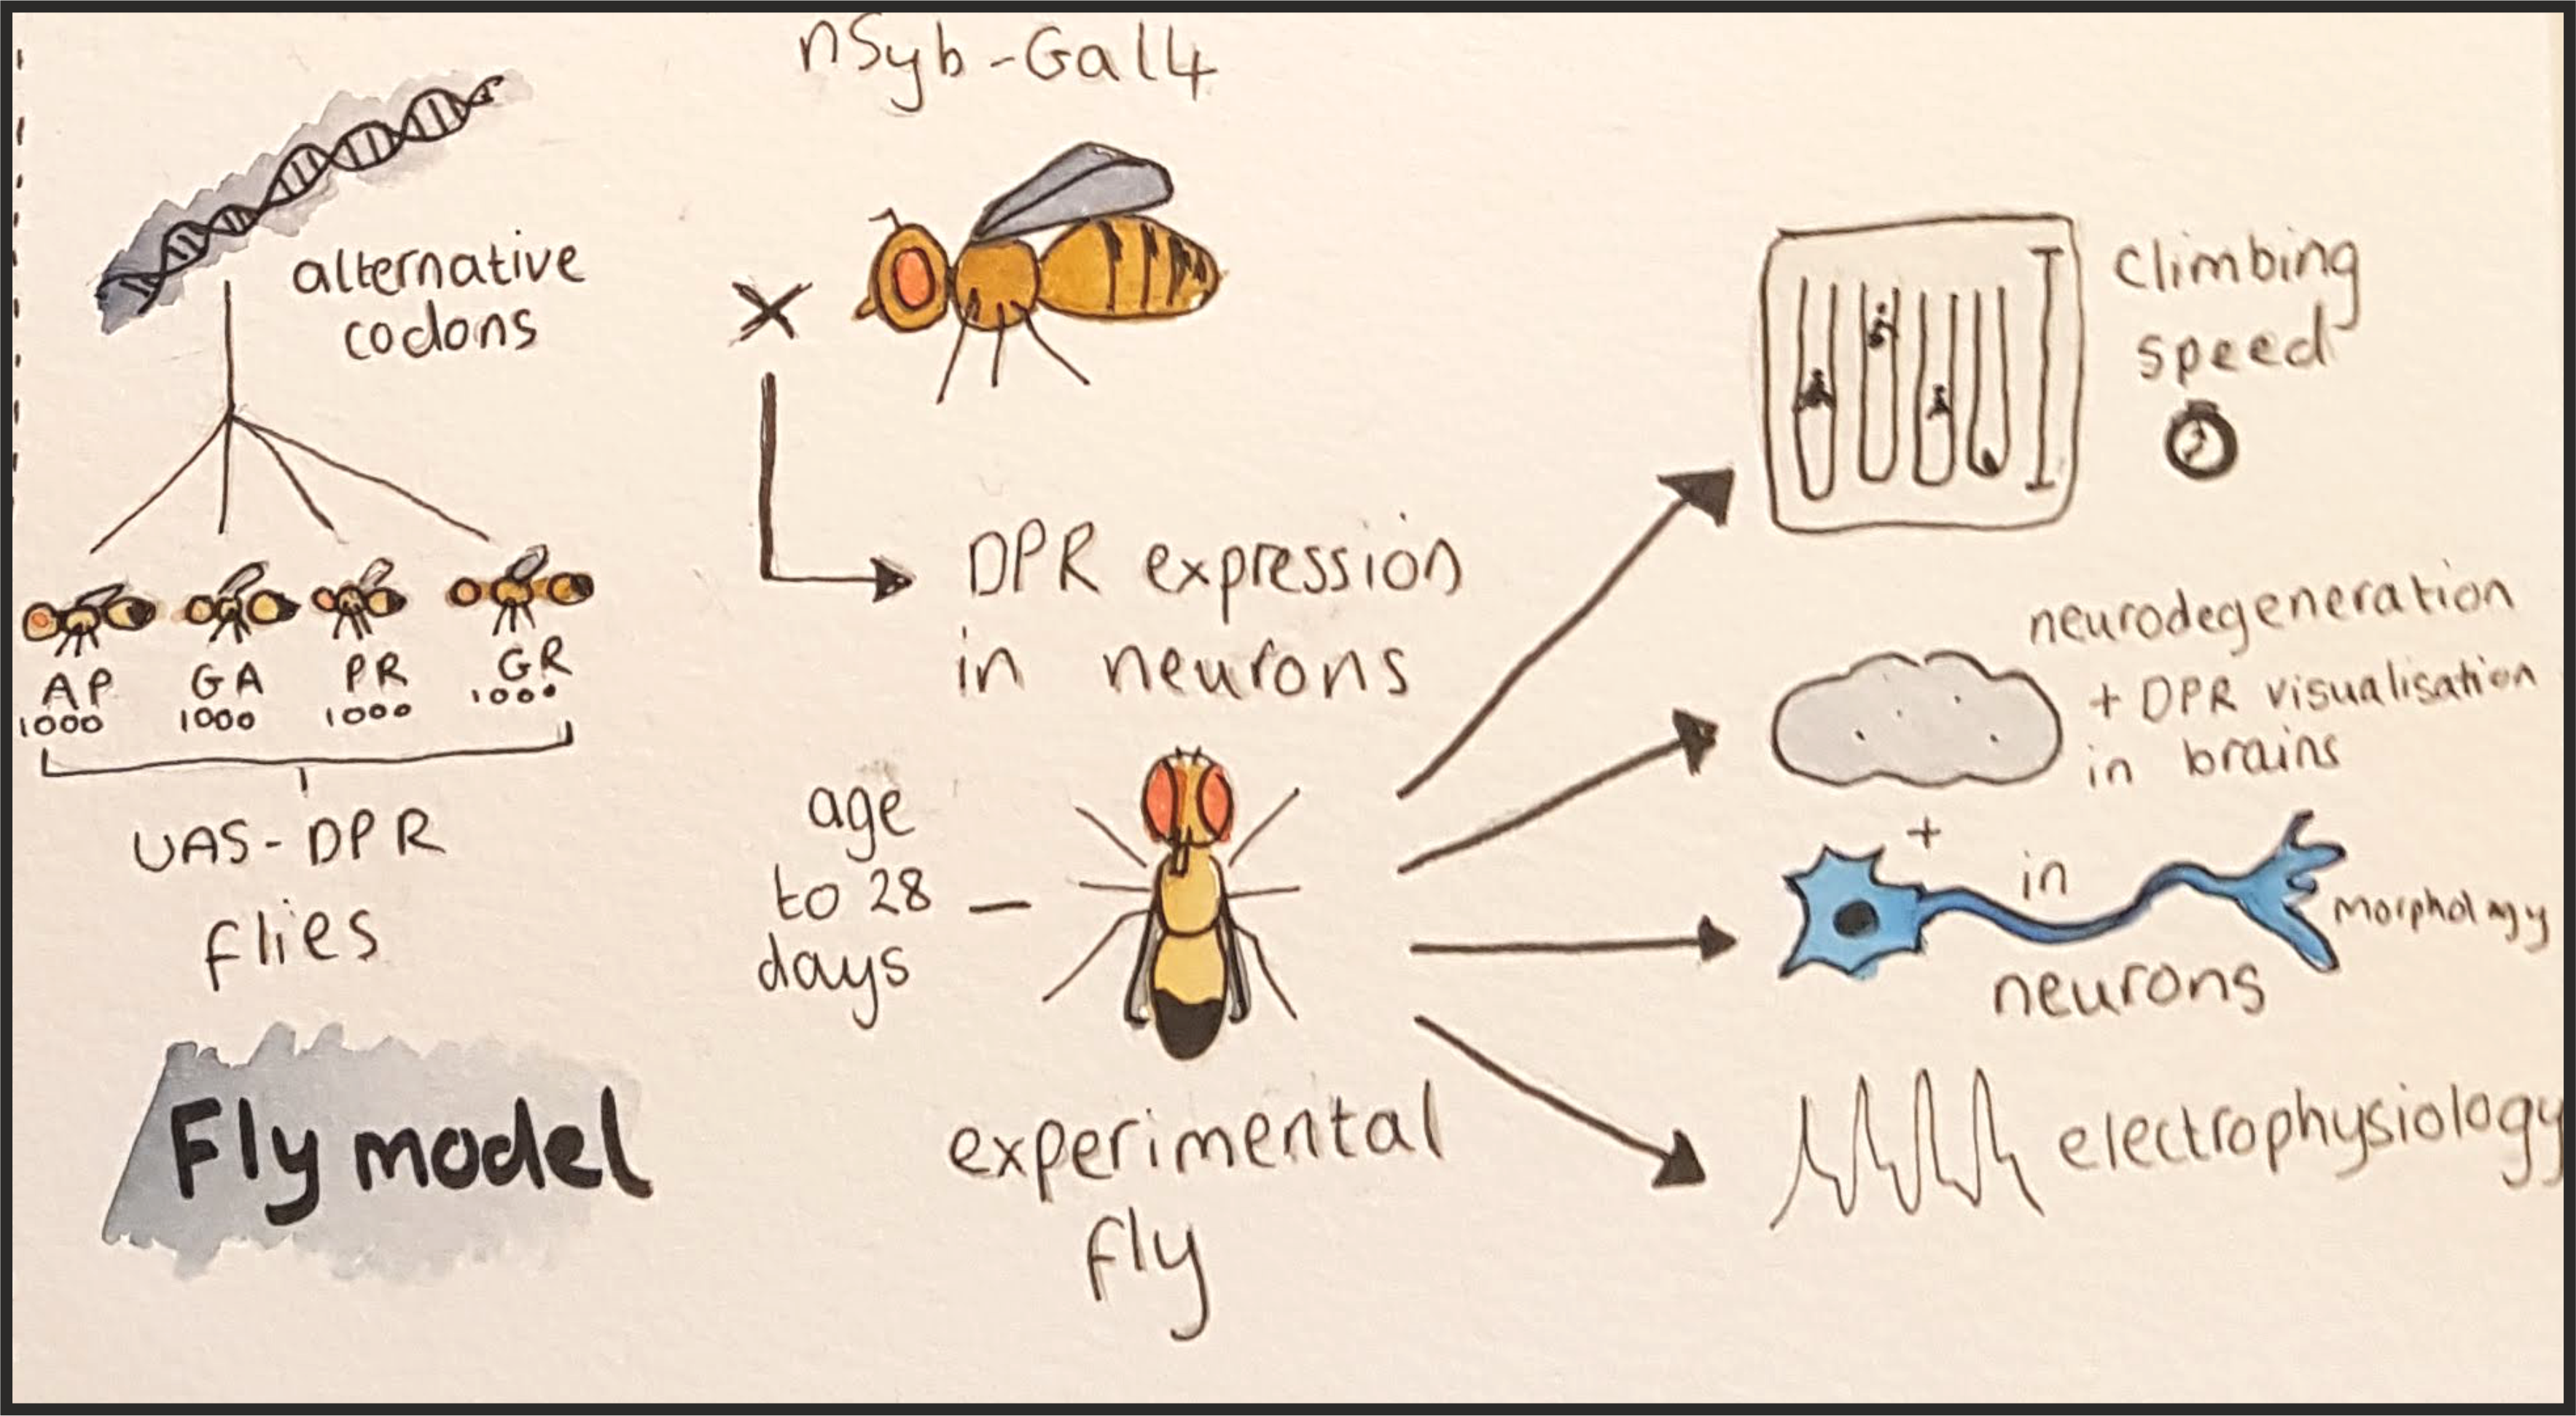 nSyb-Gal4
alternative
codons
AP
1000
GA
1000
PR
1000
GR
1000
UAS-DPR
flies
Fly model
DPR expression
in neurons
age
to 28
days
experimental
fly
climbing
speed
neurodegeneration
+ DPR visualisation
in brains
+
in
neurons
morphology
electrophysiology